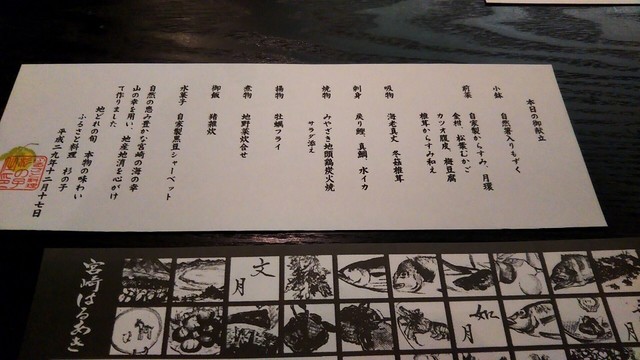 本日の御献立
小鉢 自然薯入りもずく
前菜 自家製からすみ、月環
金柑、松葉むかご
カツオ腹皮、梅豆腐
椎茸からすみ和え
吸物 海老真丈 冬菇椎茸
刺身 戻り鰹、真鯛、水イカ
焼物 みやざき地頭鶏炭火焼
サラダ添え
揚物 牡蠣フライ
煮物 地野菜炊合せ
御飯 猪雑炊
水菓子 自家製黒豆シャーベット
自然の恵み豊かな宮崎の海の幸
山の幸を用い、地産地消を心がけ
て作りました
地どれの旬 本物の味わい
ふるさと料理 杉の子
平成二九年十二月十七日
宮崎はるあき
文月
如月